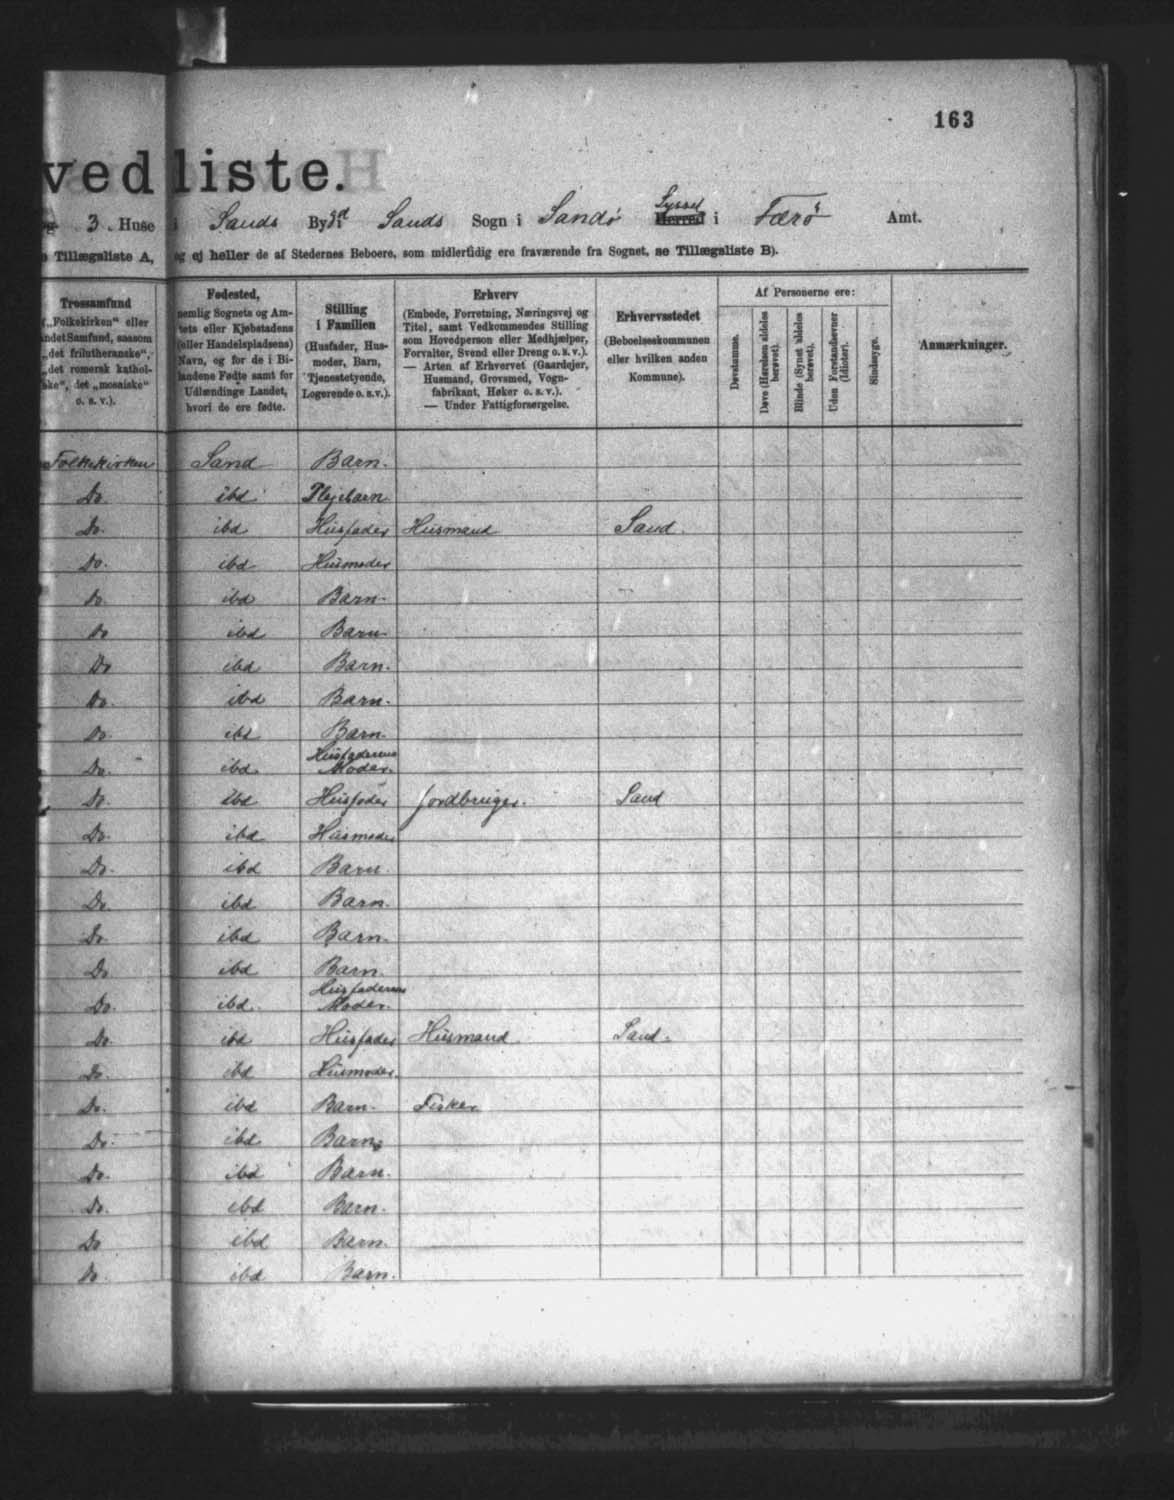 163
vedliste.
3. Huse i Sands Bygd i Sands Sogn i Sandø Syssel Herred i Færø Amt.
Tillægsliste A, og ej heller de af Stedernes Beboere, som midlertidig ere fraværende fra Sognet, se Tillægsliste B).
Trossamfund
„Folkekirken“ eller
andet Samfund, saasom
„det frilutheranske“,
„det romersk kathol-
ske“, det „mosaiske“
o. s. v.).
Fødested,
nemlig Sognets og Am-
tets eller Kjøbstadens
(eller Handelspladsens)
Navn, og for de i Bi-
landene Fødte samt for
Udlændinge Landet,
hvori de ere fødte.
Stilling
i Familien
(Husfader, Hus-
moder, Barn,
Tjenestetyende,
Logerende o. s. v.).
Erhverv
(Embede, Forretning, Næringsvej og
Titel, samt Vedkommendes Stilling
som Hovedperson eller Medhjælper,
Forvalter, Svend eller Dreng o. s. v.).
— Arten af Erhvervet (Gaardejer,
Husmand, Grovsmed, Vogn-
fabrikant, Høker o. s. v.).
— Under Fattigforsørgelse.
Erhvervsstedet
(Beboelseskommunen
eller hvilken anden
Kommune).
Af Personerne ere:
Døvstumme.
Døve (Hørelsen aldeles berøvet).
Blinde (Synet aldeles berøvet).
Uden Forstandsevner (Idioter).
Sindssyge.
Anmærkninger.
Folkekirken Sand Barn.
Do ibd Plejebarn
Do. ibd Husfader Husmand Sand.
Do. ibd Husmoder
Do. ibd Barn.
Do ibd Barn.
Do ibd Barn.
Do. ibd Barn.
Do. ibd Barn.
Do. ibd Husfaderens Moder.
Do. ibd Husfader Jordbruger. Sand
Do. ibd Husmoder
Do. ibd Barn.
Do. ibd Barn.
Do. ibd Barn.
Do ibd Barn.
Do. ibd. Husfaderens Moder.
Do. ibd Husfader Husmand. Sand.
Do. ibd Husmoder.
Do. ibd Barn. Fisker.
Do. ibd Barn.
Do. ibd Barn.
Do. ibd Barn.
Do ibd Barn.
Do. ibd Barn.